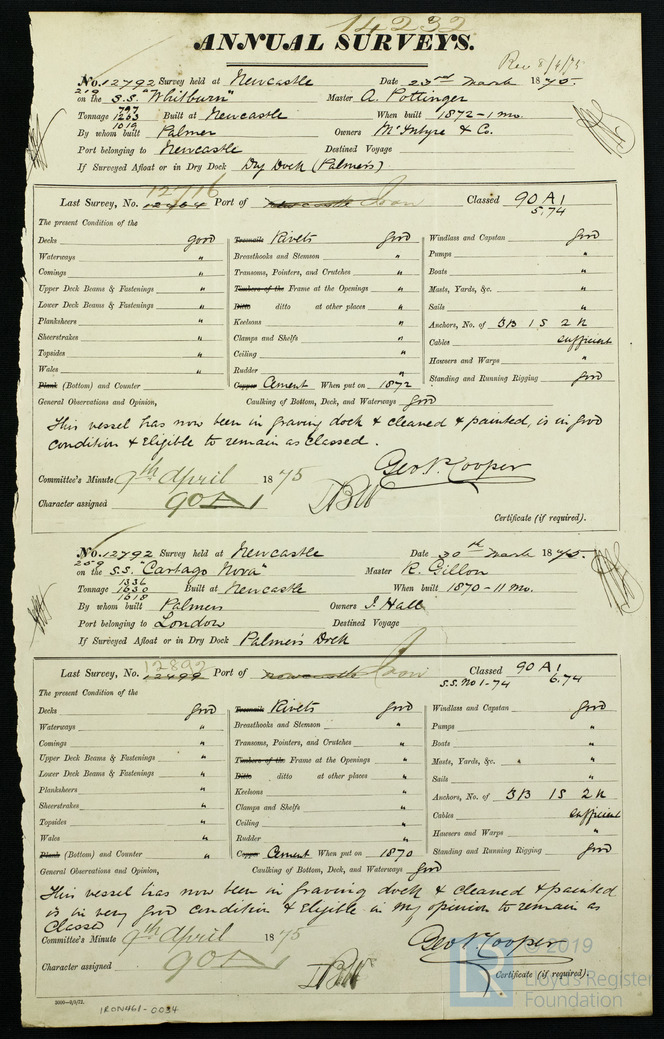 14232
ANNUAL SURVEYS.
Rec 8/4/75
No. 12792 Survey held at Newcastle Date 23rd March 1875.
219 on the S.S. "Whitburn" Master A. Pottinger
797
Tonnage 1263 Built at Newcastle When built 1872-1 mo.
1019
By whom built Palmer Owners McIntyre & Co.
Port belonging to Newcastle Destined Voyage
If Surveyed Afloat or in Dry Dock Dry Dock (Palmers)
12716
Last Survey, No. 12464 Port of Newcastle Iron Classed 90 A1
5.74
The present Condition of the
Decks good Treenails Rivets good Windlass and Capstan good
Waterways " Breasthooks and Stemson " Pumps "
Comings " Transoms, Pointers, and Crutches " Boats "
Upper Deck Beams & Fastenings " Timbers of the Frame at the Openings " Masts, Yards, &c. "
Lower Deck Beams & Fastenings " Ditto ditto at other places " Sails "
Planksheers " Keelsons " Anchors, No. of 3B 1S 2K
Sheerstrakes " Clamps and Shelfs " Cables sufficient
Topsides " Ceiling " Hawsers and Warps "
Wales " Rudder " Standing and Running Rigging good
Plank (Bottom) and Counter " Copper Cement When put on 1872
General Observations and Opinion, Caulking of Bottom, Deck, and Waterways good
This vessel has now been in graving dock & cleaned & painted, is in good
condition & Eligible to remain as classed.
Geo N. Cooper
Committee's Minute 9th April 1875
Character assigned 90A1
Certificate (if required).
No. 12792 Survey held at Newcastle Date 30th March 1875.
259 on the S.S. "Cartago Nova" Master R. Gillon
1336
Tonnage 1630 Built at Newcastle When built 1870-11 mo.
1618
By whom built Palmers Owners J. Hall
Port belonging to London Destined Voyage
If Surveyed Afloat or in Dry Dock Palmers Dock
12892
Last Survey, No. 12499 Port of Newcastle Iron Classed 90 A1
S.S. No 1-74 6.74
The present Condition of the
Decks good Treenails Rivets good Windlass and Capstan good
Waterways " Breasthooks and Stemson " Pumps "
Comings " Transoms, Pointers, and Crutches " Boats "
Upper Deck Beams & Fastenings " Timbers of the Frame at the Openings " Masts, Yards, &c. " "
Lower Deck Beams & Fastenings " Ditto ditto at other places " Sails "
Planksheers " Keelsons " Anchors, No. of 3B 1S 2K
Sheerstrakes " Clamps and Shelfs " Cables sufficient
Topsides " Ceiling " Hawsers and Warps "
Wales " Rudder " Standing and Running Rigging good
Plank (Bottom) and Counter " Copper Cement When put on 1870
General Observations and Opinion, Caulking of Bottom, Deck, and Waterways good
This vessel has now been in graving dock & cleaned & painted
is in very good condition & Eligible in my opinion to remain as
Classed
Geo N. Cooper
Committee's Minute 9th April 1875
Character assigned 90A1
Certificate (if required).
2000—3/3/72.
IRON461-0034
© 2019
LR
Lloyd's Register
Foundation